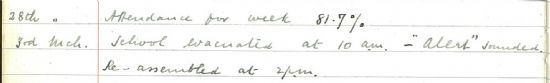 28th " Attendance for week 81.7%
3rd Mch. School evacuated at 10 a.m. - "Alert" sounded.
Re-assembled at 2pm.